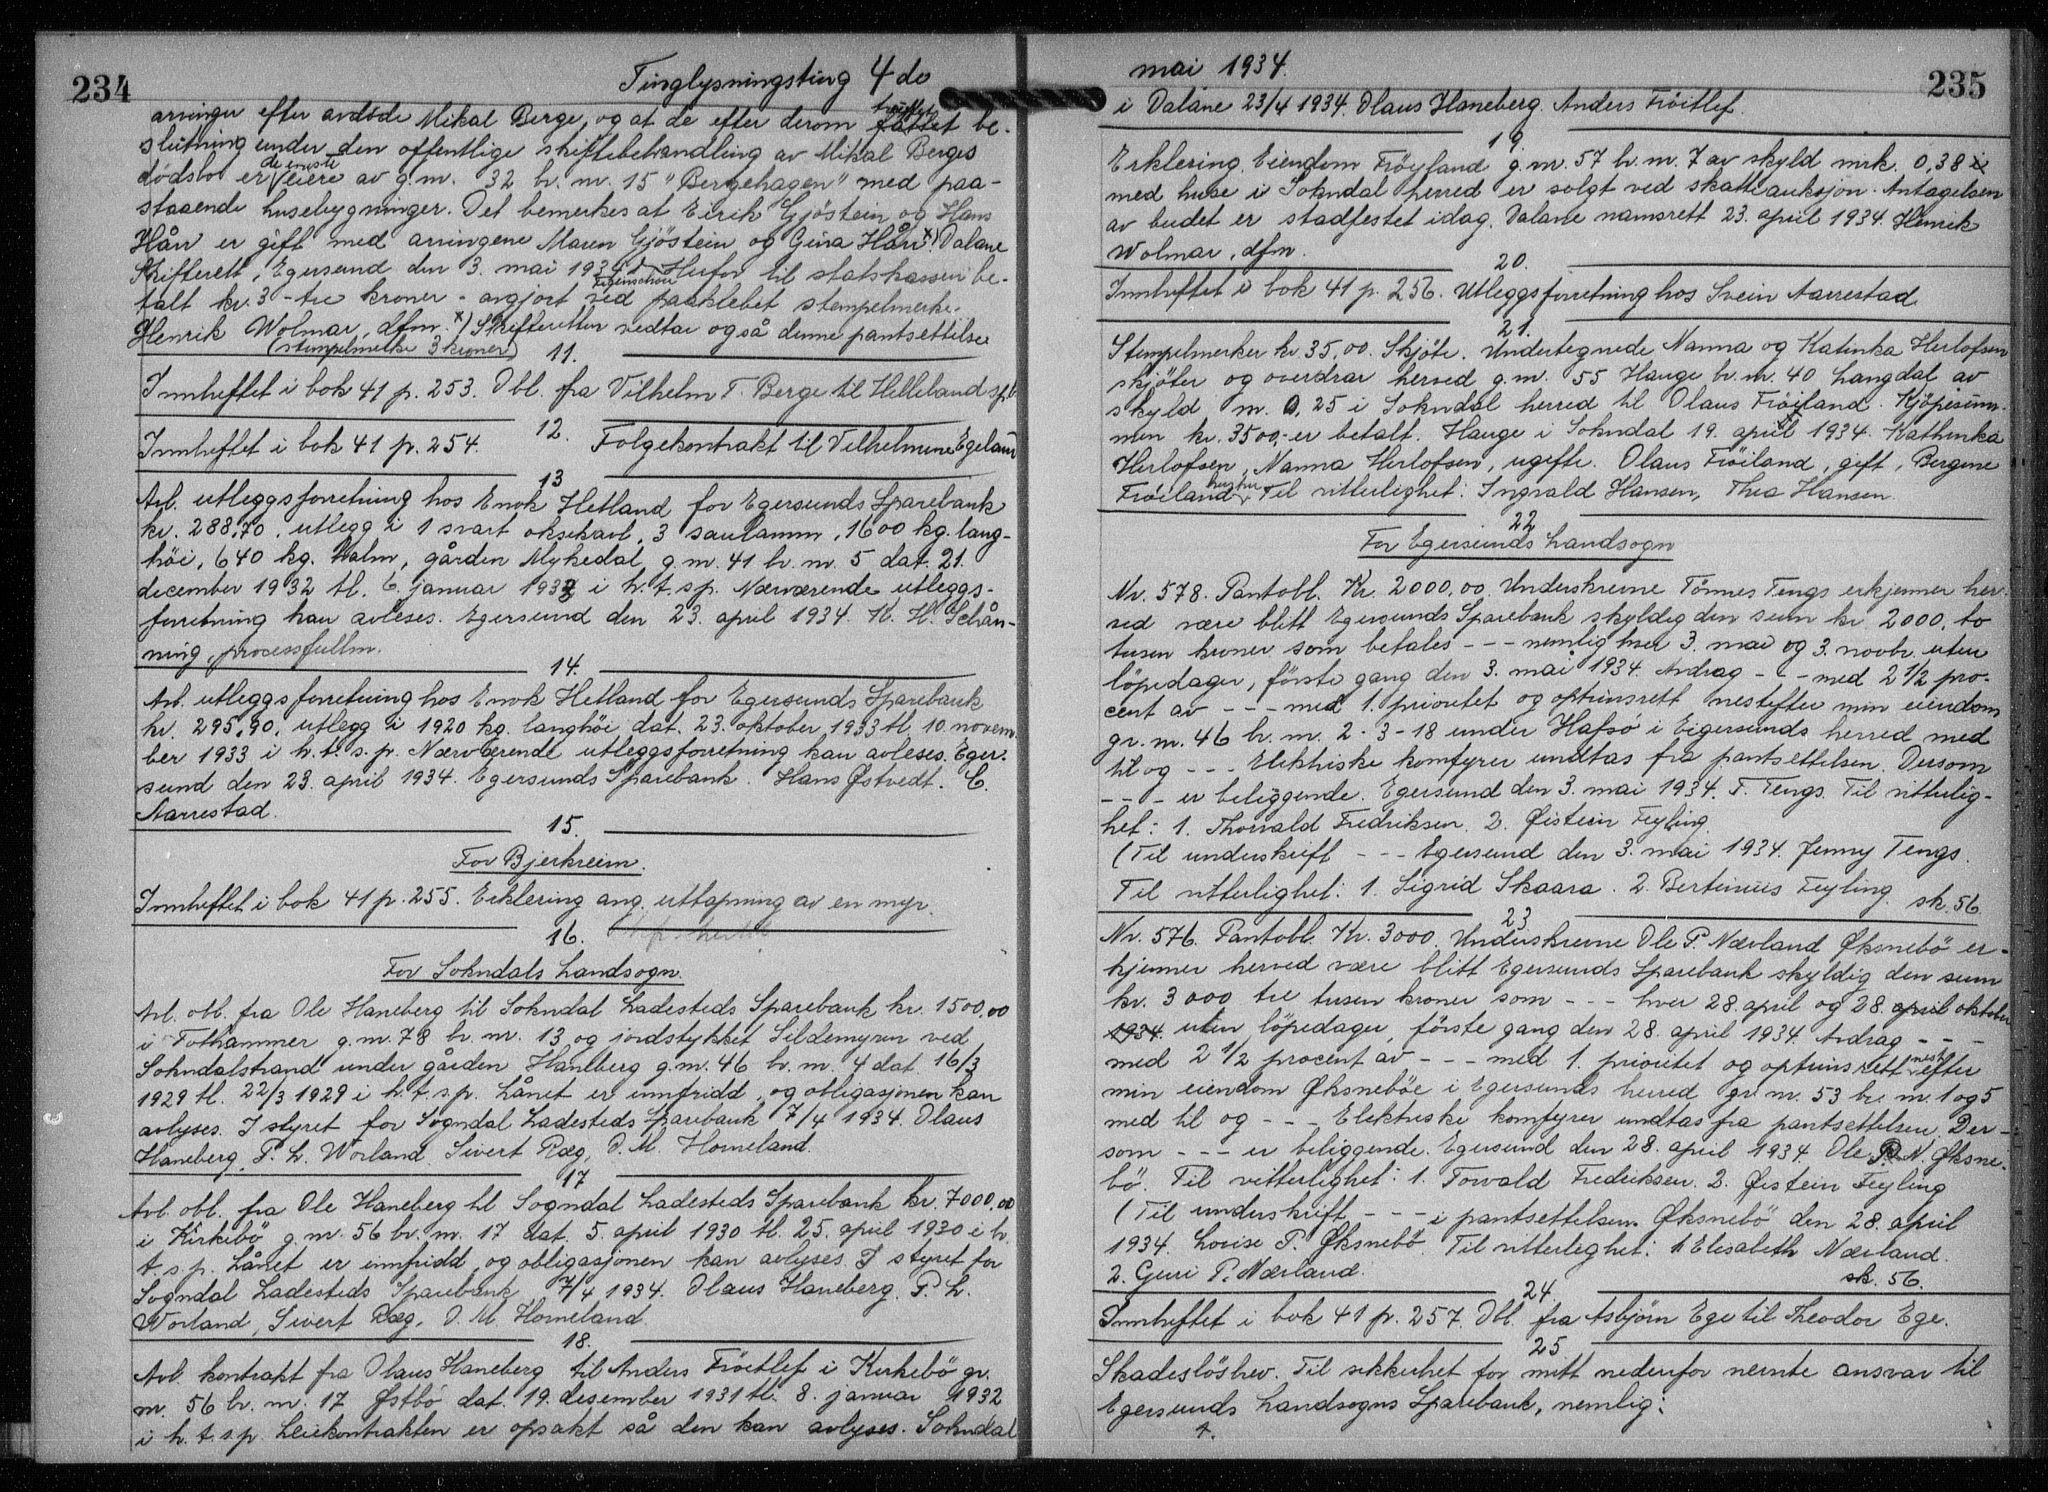 234
Tinglysningsting 4 de
arvinger efter avdöde Mikal Berge, og at de efter derom truffet fattet be-
slutning under den offentlige skiftebehandling av Mikal Berges
dödsbo er de eneste eiere av g.nr. 32 br. nr. 15 "Bergehagen" med paa-
staaende husebygninger. Det bemerkes at Eirik Gjöstein og Hans
Hårr er gift med arvingene Maren Gjöstein og Gina Hårr x) Dalane
Skifterett, Egersund den 3. mai 1934. Herfor til statskassen be-
talt kr. 3 - tre kroner - avgjort ved paaklebet stempelmerke.
Henrik Wolmar, dfm. x) Skifteretten vedtar også denne pantsettilse
(stempelmerke 3 kroner)
11.
Innheftet i bok 41 p. 253. Obl. fra Vilhelm T. Berge til Helleland spb
12.
Innheftet i bok 41 p. 254. Folgekontrakt til Vilhelmine Egeland
13
Avl. utleggsforretning hos Enok Hetland for Egersunds Sparebank
kr. 288,70, utlegg i 1 svart oksekalv, 3 saulamm, 1600 kg. lang-
höi, 640 kg. halm, gården Mykedal g.nr. 41 br. nr. 5 dat. 21.
december 1932 tl. 6. januar 1933 i h.t.s.p. Nærværende utleggs-
forretning kan avleses. Egersund den 23. april 1934. K. H. Schån-
ning, processfullm.
14.
Avl. utleggsforretning hos Enok Hetland for Egersunds Sparebank
kr. 295,90, utlegg i 1920 kg. langhöi dat. 23. oktober 1933 tl. 10 novem-
ber 1933 i h.t.s.p. Nærværende utleggsforretning kan avleses. Eger-
sund den 23. april 1934. Egersunds Sparebank. Hans Østvedt. C.
Aarrestad.
15.
For Bjerkreim.
Innheftet i bok 41 p. 255. Erklering ang. uttapning av en myr.
16.
For Sokndals Landsogn.
Avl. obl. fra Ole Haneberg til Sokndal Ladesteds Sparebank kr. 1500,00
i Tothammer g.nr. 78 br. nr. 13 og jordstykket Sildemyren ved
Sokndalstrand under gården Haneberg g.nr. 46 br. nr. 4 dat. 16/3
1929 tl. 22/3 1929 i h.t.s.p. Lånet er innfridd, og obligasjonen kan
avlyses. I styret for Sogndal Ladesteds Sparebank 7/4 1934. Olaus
Haneberg, P. L. Worland. Sivert Ræg, O. M. Homeland.
17
Avl. obl. fra Ole Haneberg til Sogndal Ladesteds Sparebank kr. 7000,00
i Kirkebö g.nr. 56 br. nr. 17 dat. 5. april 1930 tl. 25. april 1930 i h.
t.s.p. Lånet er innfridd, og obligasjonen kan avlyses. I styret for
Sogndal Ladesteds Sparebank 7/4 1934. Olaus Haneberg. P. L.
Worland, Sivert Ræg, O. M. Homeland.
18.
Avl. kontrakt fra Olaus Haneberg til Anders Fröitlef i Kirkebö gr.
nr. 56 br. nr. 17 Østbö dat. 19. desember 1931 tl. 8. januar 1932
i h.t.s.p. Leiekontrakten er opsakt så den kan avlyses. Sokndal
mai 1934.
235
i Dalane 23/4 1934. Olaus Haneberg. Anders Fröitlef.
19.
Erklering. Eiendom Fröyland g.nr. 57 br. nr. 7 av skyld mrk. 0,38 i
med huse i Sokndal herred er solgt ved skatteauksjon. Antagelsen
av budet er stadfestet idag. Dalane namsrett 23. april 1934. Henrik
Wolmar, dfm.
20.
Innheftet i bok 41 p. 256. Utleggsforretning hos Svein Aarrestad.
21.
Stempelmerker kr. 35,00. Skjöte. Undertegnede Nanna og Katinka Herlofsen
skjöter og overdrar herved g.nr. 55 Hauge br. nr. 40 Langdal av
skyld m. 0,25 i Sokndal herred til Olaus Fröiland. Kjöpesum-
men kr. 3500,- er betalt. Hauge i Sokndal 19. april 1934. Kathinka
Herlofsen, Nanna Herlofsen, ugifte. Olaus Fröiland, gift, Bergine
Fröiland hustru. Til vitterlighet: Ingvald Hansen, Thea Hansen.
22
For Egersunds Landsogn
Nr. 578. Pantobl. Kr. 2000,00. Underskrevne Tönnes Tengs erkjenner her-
ved være blitt Egersunds Sparebank skyldig den sum kr. 2000, to
tusen kroner som betales - - - nemlig hver 3. mai og 3. novbr. uten
löpedager, förste gang den 3. mai 1934. Avdrag - - - med 2 1/2 pro-
cent av - - - med 1. prioritet og optrinsrett nestefter min eiendom
gr. nr. 46 br. nr. 2-3-18 under Hafsö i Eigersunds herred med
til og - - - Elektriske komfyrer undtas fra pantsettelsen. Dersom
- - - er beliggende. Egersund den 3. mai 1934. T. Tengs. Til vitterlig-
het: 1. Thorvald Fredriksen. 2. Øistein Feyling.
(Til underskrift - - - Egersund den 3. mai 1934. Jenny Tengs.
Til vitterlighet: 1. Sigrid Skaara. 2. Bertinius Feyling. sk. 56
23
Nr. 576. Pantobl. Kr. 3000. Underskrevne Ole P. Nævland Øksnebö er-
kjenner herved være blitt Egersunds Sparebank skyldig den sum
kr. 3000 tre tusen kroner som - - - hver 28. april og 28. april oktober
1934 uten löpedager, förste gang den 28. april 1934. Avdrag - - -
med 2 1/2 procent av - - - med 1. prioritet og optrinsrett nestefter
min eiendom Øksneböe i Egersunds herred gr. nr. 53 br. nr. 1 og 5
med til og - - - Elektriske komfyrer undtas fra pantsettelsen. Der-
som - - - er beliggende. Egersund den 28. april 1934. Ole P. N. Øksne-
bö. Til vitterlighet: 1. Torvald Fredriksen. 2. Øistein Feyling
(Til underskrift - - - i pantsettelsen. Øksnebö den 28. april
1934. Lovise P. Øksnebö. Til vitterlighet: 1 Elisabeth Nævland.
2. Guri P. Nævland. sk. 56.
24.
Innheftet i bok 41 p. 257. Obl. fra Asbjörn Ege til Theodor Ege.
25
Skadeslösbrev. Til sikkerhet for mitt nedenfor nevnte ansvar til
Egersunds Landsogns Sparebank, nemlig: